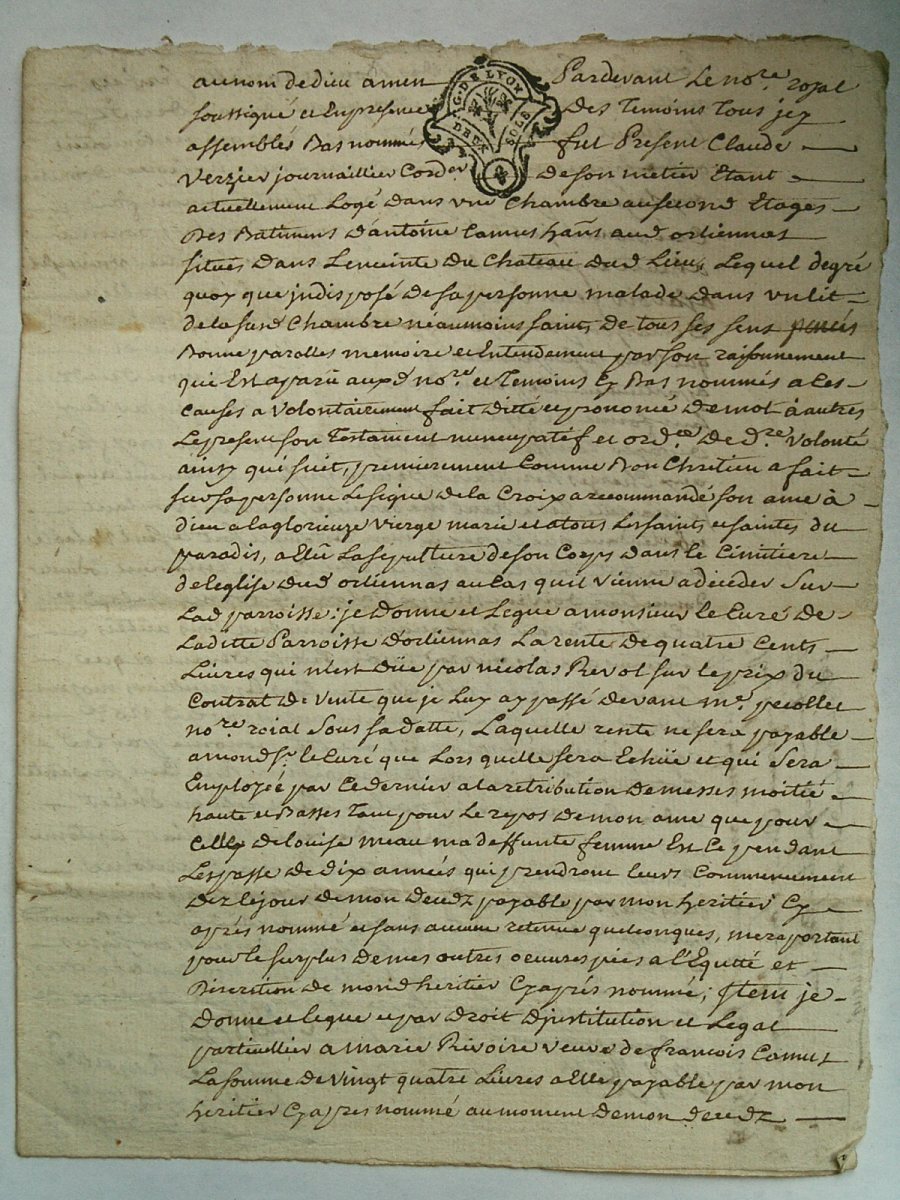 au nom de dieu amen Pardevant Le no.re royal
G. DE LYON
DEUX SOLS
soussigné et En presence Des Temoins Tous jcy
assemblés Bas nommés fut Present Claude
Verzier journaillier Corder De son metier Etant
actuellement Logé dans une Chambre au second Etages
Des Batimens D'antoine Camus hans aud orliennas
situés Dans Lenceinte Du Chateau dud Lieu, Lequel de gré
quoy que jndisposé de sa personne malade Dans un lit
de la susd Chambre néaumoins sain, De tous ses sens
Bonne parolles memoire et Entendement par son raisonnement
qui Est aparü auxd no.res et Temoins Cy Bas nommés a Ces
Causes a Volontairement fait ditté et prononcé De mot à autres
Le present son Testament nuncupatif et ord.ce De d.re volonté
ainsy qui suit, premierement Comme Bon Chretien a fait
sur sa personne Le signe de la Croix a recommandé son ame à
dieu a la glorieuze vierge marie et a tous Les saints et saintes du
paradis, a Elü La sepulture de son Corps dans le Cimitiere
de l'eglise dud orliennas au Cas quil vienne a déceder sur
Lad parroisse: je Donne et Legue a monsieur le Curé de
Laditte Parroisse d'orliennas La rente De quatre Cents
Livres qui m'est Düe par nicolas Revol sur le prix du
Contrat de Vente que je Luy ay passé devant m.e pecollet
no.re roial sous sa datte, Laquelle rente ne sera payable
a mond s.r le Curé que Lors quelle sera Echüe et qui sera
Employée par Ce dernier a la retribution De messes moitié
haute et Basses Tant pour Le repos De mon ame que pour
Celle de Louise meau ma deffunte femme Est Ce pendant
L'espasse de dix années qui prendront leurs Commencement
dez le jour de mon decedz payable par mon heritier Cy
après nommé et sans aucune retenue quelconques, me raportant
pour le surplus de mes outres oeuvres pies a l'Equtté et
Discretion de mond heritier Cy après nommé; Jtem je
Donne et legue et par droit Djnstitution et Legat
particullier a Marie Rivoire veuve de françois Camus
La somme de vingt quatre Livres a Elle payable par mon
heritier Cy apres nommé au moment de mon decedz